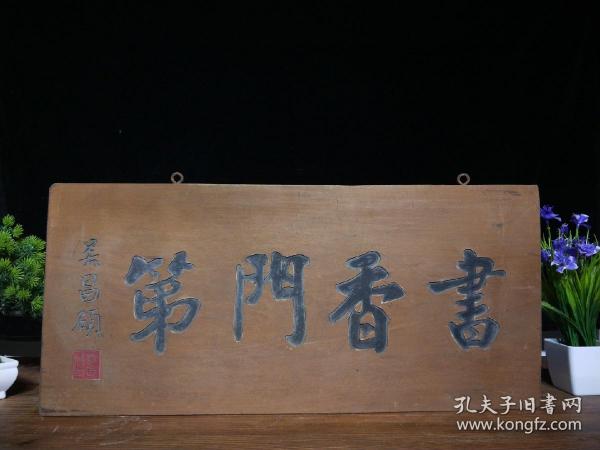 書香門第
吳昌碩
孔夫子旧書网
www.kongfz.com